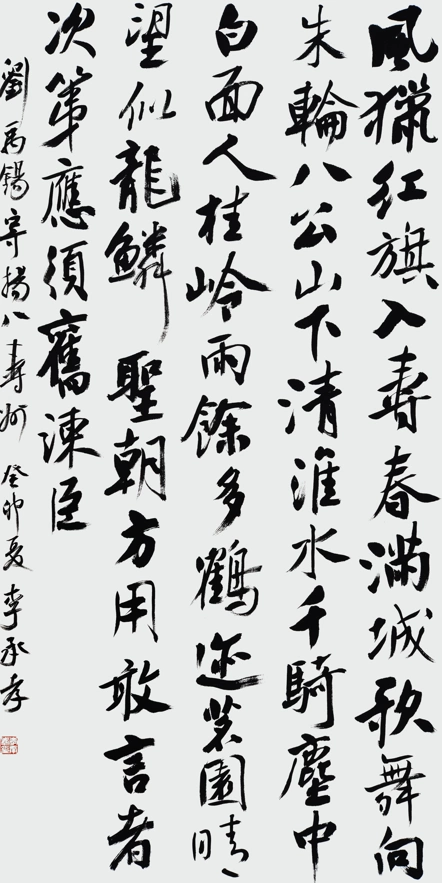 風獵紅旗入壽春滿城歌舞向
朱輪八公山下清淮水千騎塵中
白面人桂嶺雨餘多鶴迹茗園晴
望似龍鱗 聖朝方用敢言者
次第應須舊諫臣
劉禹錫寄楊八壽州 癸卯夏 李承孝